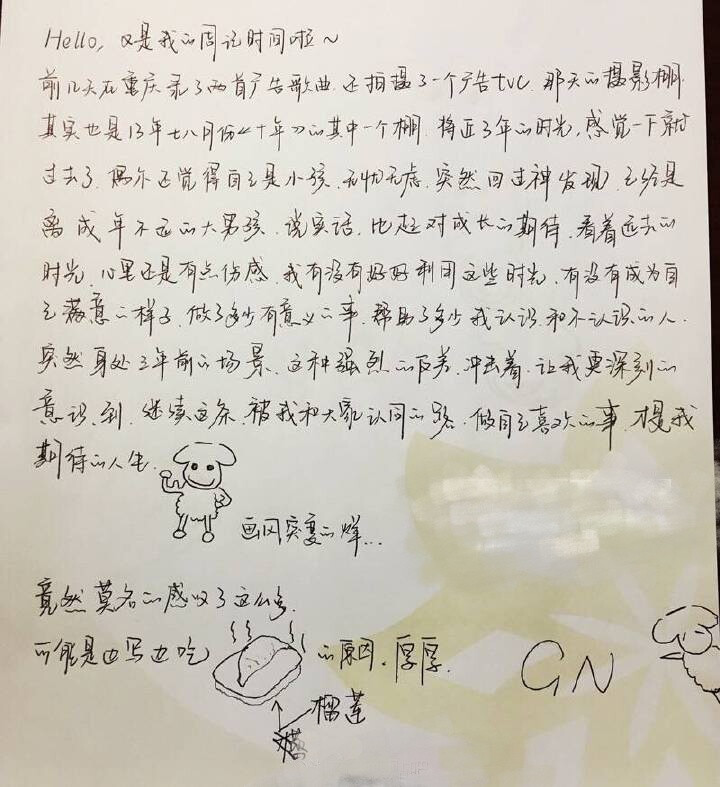 Hello, 又是我的周记时间啦～
前几天在重庆录了两首广告歌曲.还拍摄了一个广告tvc.那天的摄影棚.
其实也是13年七八月份《十年》的其中一个棚.将近3年的时光,感觉一下就
过去了.偶尔还觉得自己是小孩.无忧无虑.突然回过神发现,已经是
离成年不远的大男孩.说实话.比起对成长的期待.看着远去的
时光.心里还是有点伤感.我有没有好好利用这些时光.有没有成为自
己满意的样子.做了多少有意义的事.帮助了多少我认识和不认识的人.
突然身处三年前的场景.这种强烈的反差.冲击着.让我更深刻的
意识到.继续这条.被我和大家认同的路.做自己喜欢的事.才是我
期待的人生.
画风突变的烊...
竟然莫名的感叹了这么多.
可能是边写边吃 的原因.厚厚.
榴莲
GN